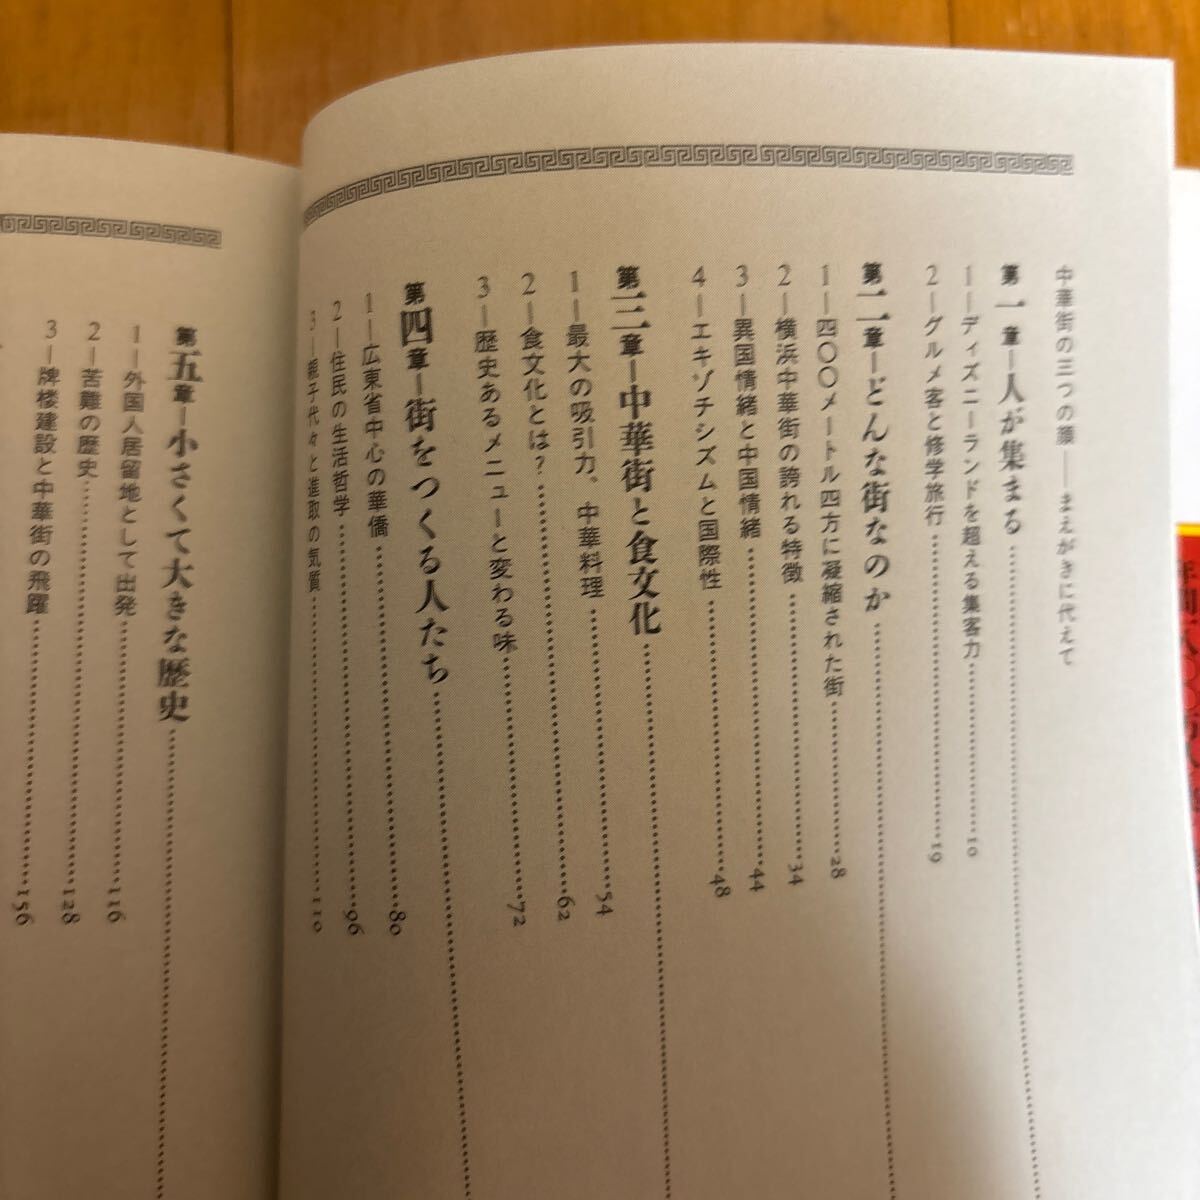 中華街の三つの顔――まえがきに代えて
第一章―人が集まる
1―ディズニーランドを超える集客力……10
2―グルメ客と修学旅行……19
第二章―どんな街なのか
1―四〇〇メートル四方に凝縮された街……28
2―横浜中華街の誇れる特徴……34
3―異国情緒と中国情緒……44
4―エキゾチシズムと国際性……48
第三章―中華街と食文化
1―最大の吸引力、中華料理……54
2―食文化とは?……62
3―歴史あるメニューと変わる味……72
第四章―街をつくる人たち
1―広東省中心の華僑……80
2―住民の生活哲学……96
3―親子代々と進取の気質……110
第五章―小さくて大きな歴史
1―外国人居留地として出発……116
2―苦難の歴史……128
3―牌楼建設と中華街の飛躍……156